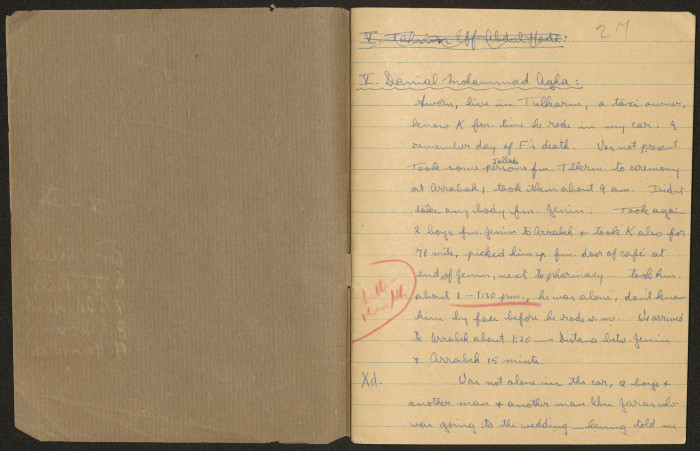 27
V. Danial Mohammad Agha:
Sworn, live in Tulkarm, a taxi owner.
know K fm. time he rode in my car. I
remember day of F's death. Was not present
Took some persons fm. Tlkrm. to ceremony
at Arrabeh, took them about 9 am. Didnt
take any body fm. Jenin. Took again
2 boys fm. Jenin to Arrabeh & took K also for
70 mils, picked him up fm. door of café at
end of Jenin, next to pharmacy — took him
about 1 - 1:30 p.m., he was alone, don't know
him by face before he rode w. me. We arrived
to Arrabeh about 1:20 — Distance betw. Jenin
& Arrabeh 15 minte.
Xd. Was not alone in the car, 2 boys &
another man & another man Jaras who
was going to the wedding — having told me